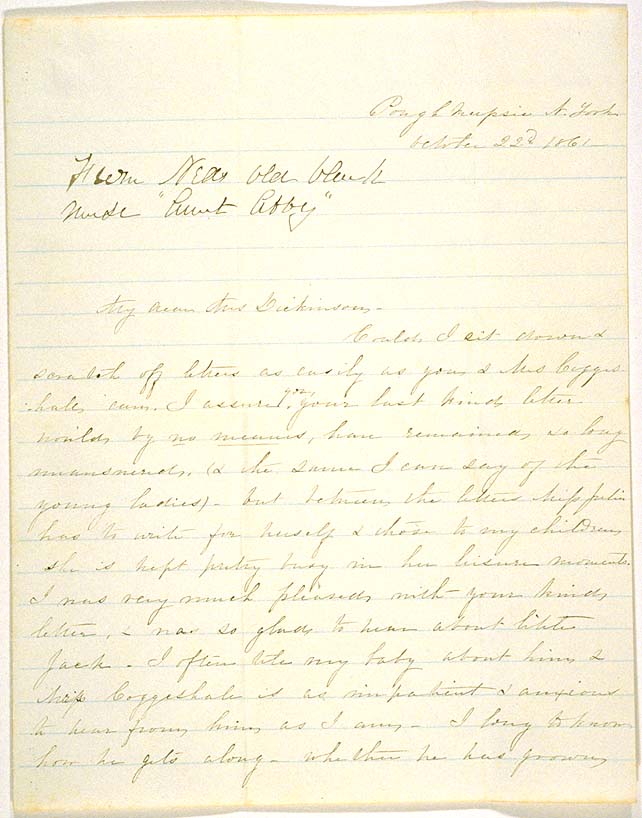 Poughkeepsie N. York
October 22d 1861
From Neds old black
nurse "Aunt Abby"
My dear Mrs Dickinson -
Could I sit down &
scratch off letters as easily as you & Mrs Cogges
hale, can. I assure you, your last kind letter
would by no means, have remained so long
unanswered. (& the same I can say of the
young ladies) - but between the letters Miss
has to write for herself & those to my children
she is kept pretty busy in her leisure moments.
I was very much pleased with your kind
letter, & was so glad to hear about little
Jack - I often tell my baby about him &
Miss Coggeshale is as impatient & anxious
to hear from him as I am - I long to know
how he gets along - whether he has grown